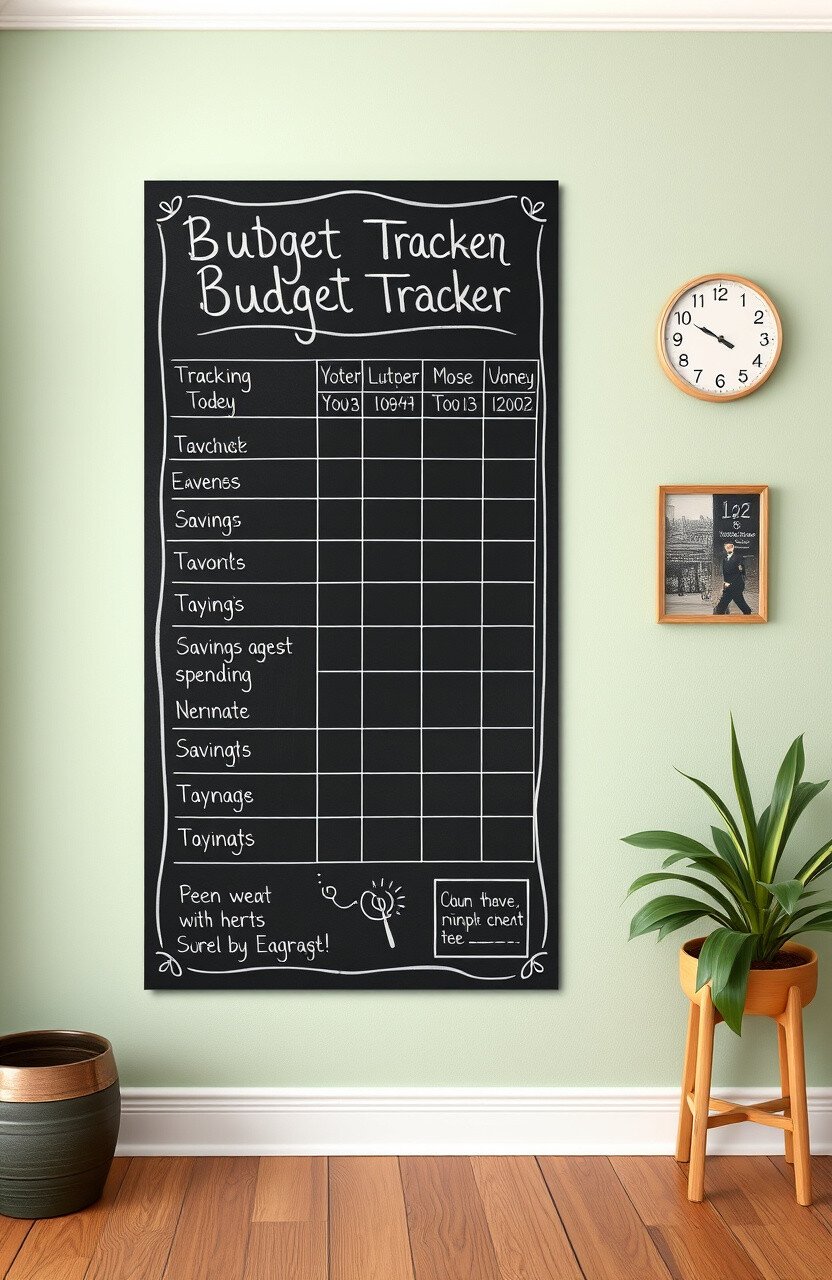 Bubget Tracken
Budget Tracker
Tracking Today
Yoter Lutper Mose Voney
You3 10947 Too13 12002
Tavchick
Eavenss
Savings
Tavorits
Tayings
Savings agest
spending
Nernnate
Savingts
Taynage
Toyinats
Peen weat
with herts
Surel by Eagrast!
Coun thave,
tee
12 1 2 3 4 5 6 7 8 9 10 11